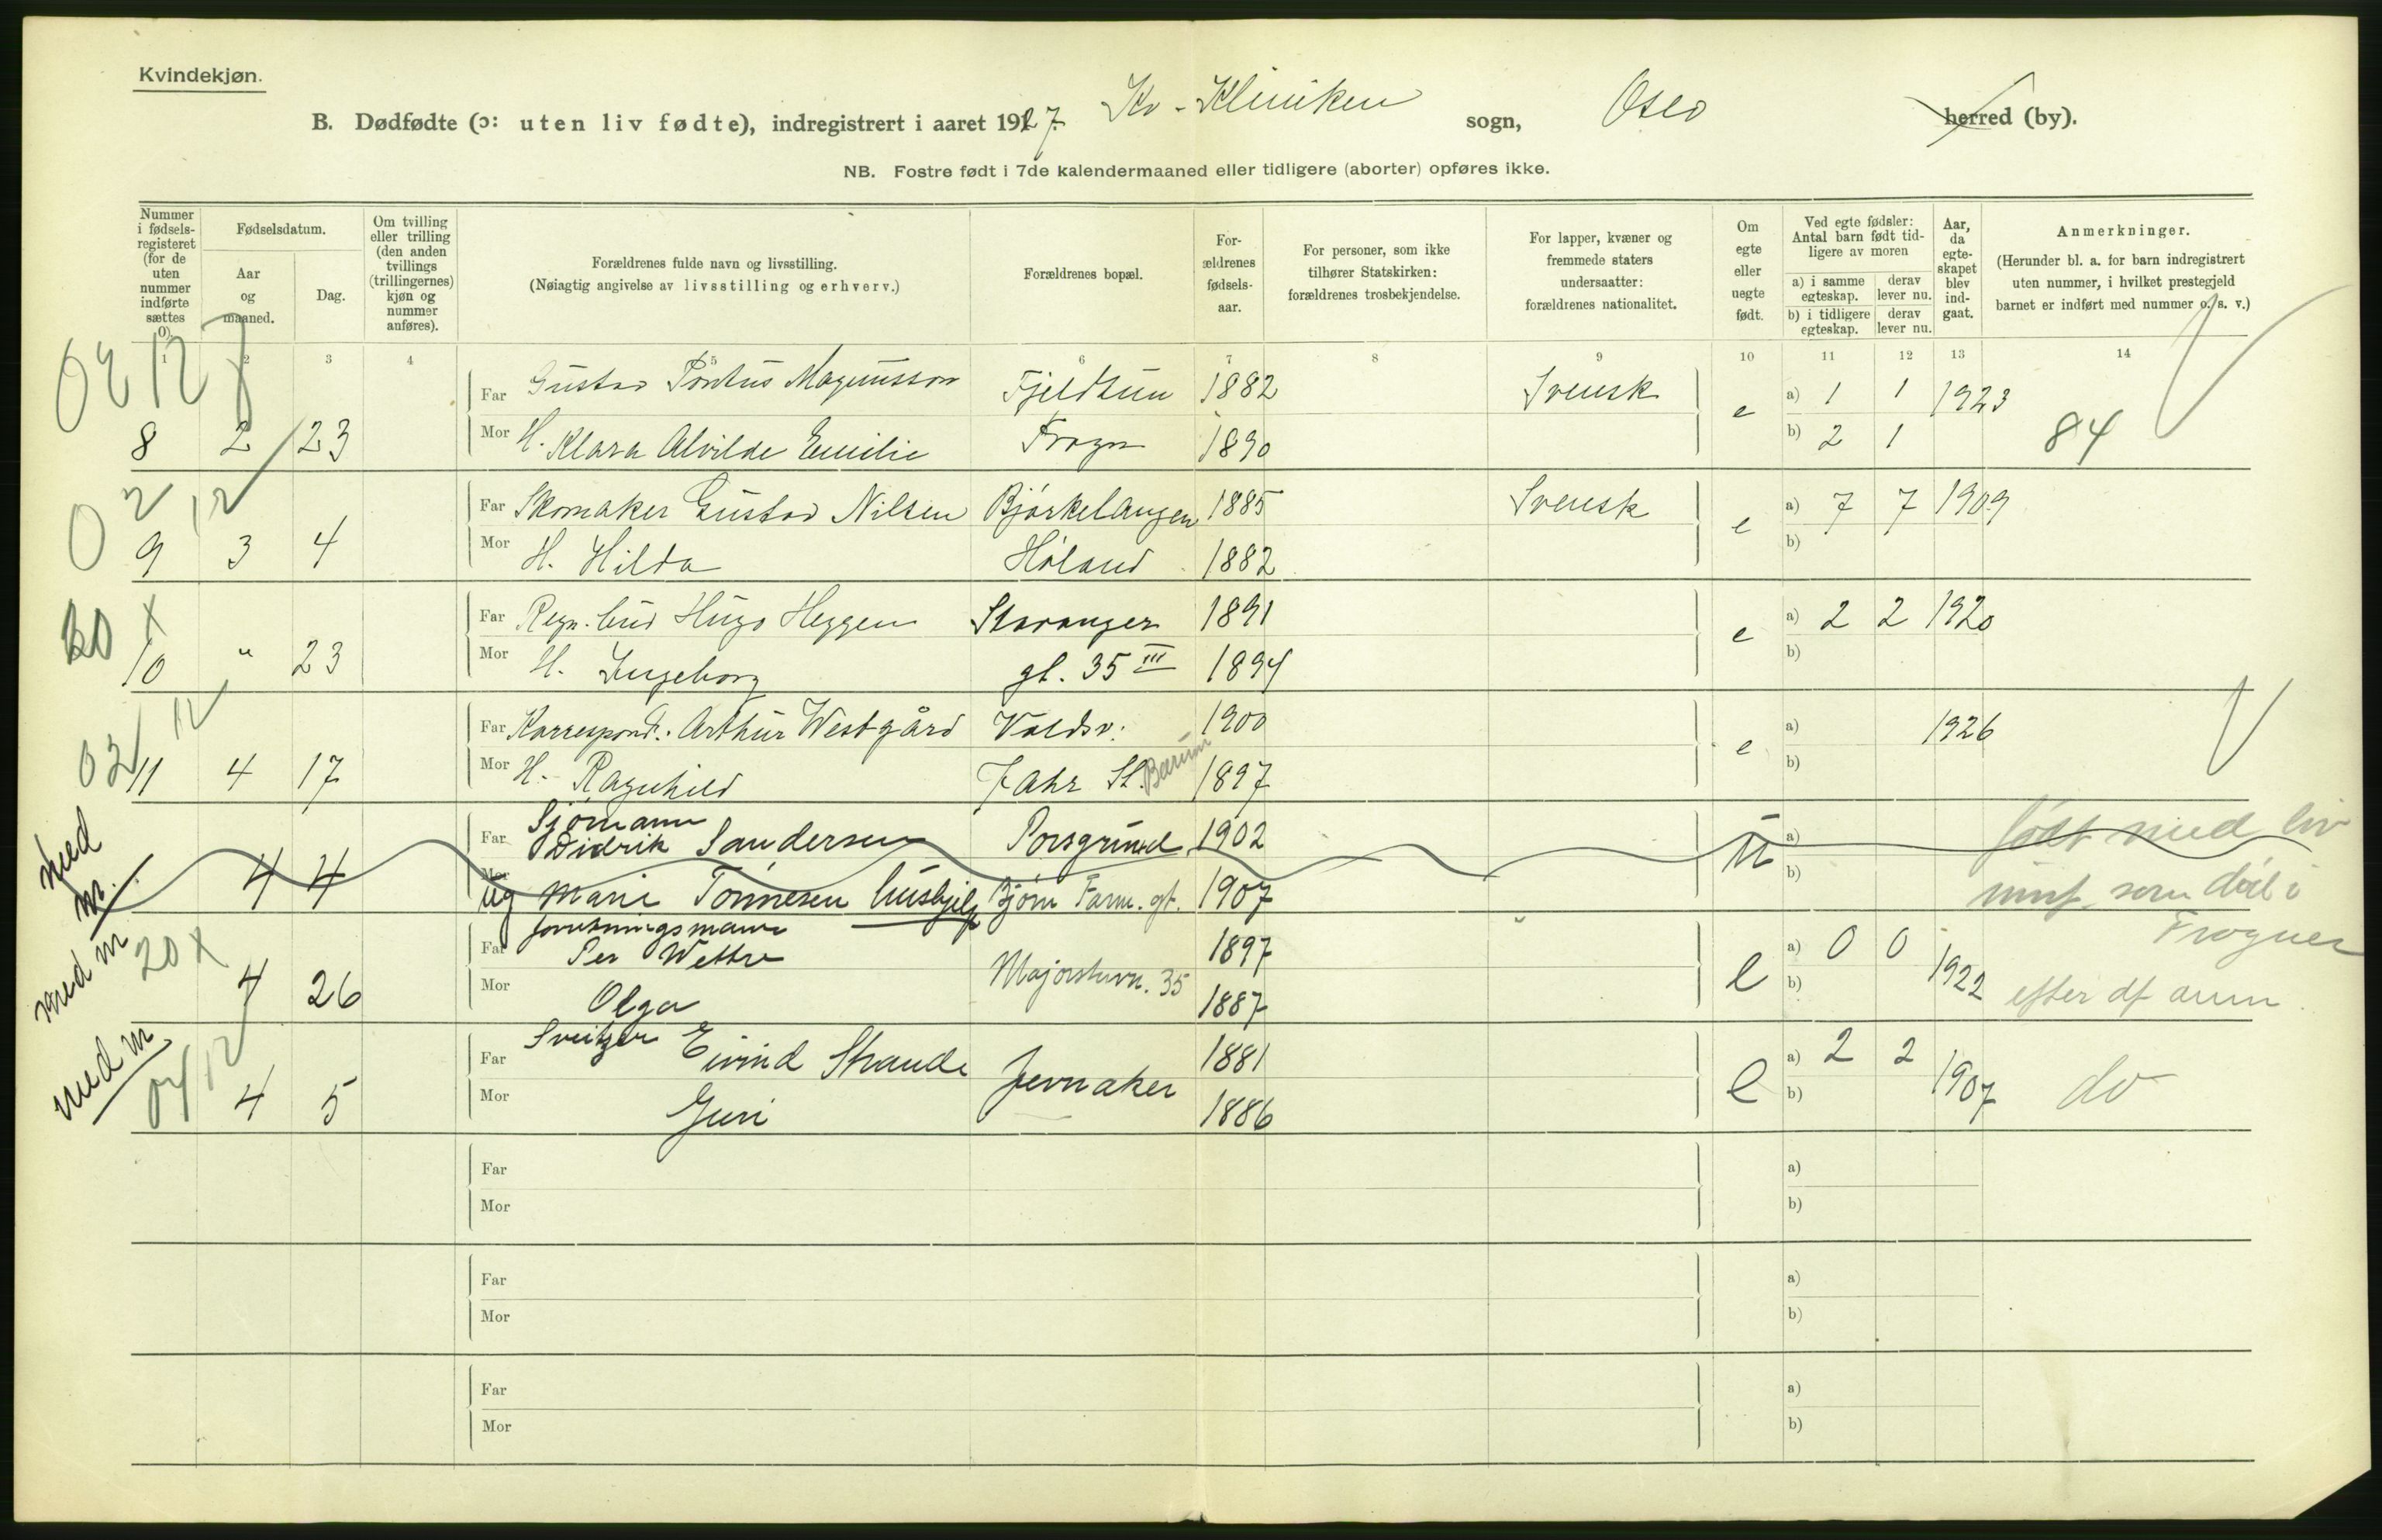 Kvindekjøn.
B. Dødfødte (ɔ: uten liv fødte), indregistrert i aaret 1927. Kv-Kliniken sogn, Oslo herred (by).
NB. Fostre født i 7de kalendermaaned eller tidligere (aborter) opføres ikke.
Nummer i fødsels-registeret (for de uten nummer indførte sættes 0).
Fødselsdatum.
Aar og maaned.
Dag.
Om tvilling eller trilling (den anden tvillings (trillingernes) kjøn og nummer anføres).
Forældrenes fulde navn og livsstilling.
(Nøiagtig angivelse av livsstilling og erhverv.)
Forældrenes bopæl.
For-ældrenes fødsels-aar.
For personer, som ikke tilhører Statskirken: forældrenes trosbekjendelse.
For lapper, kvæner og fremmede staters undersaatter: forældrenes nationalitet.
Om egte eller uegte født.
Ved egte fødsler: Antal barn født tid-ligere av moren
a) i samme egteskap. derav lever nu.
b) i tidligere egteskap. derav lever nu.
Aar, da egte-skapet blev ind-gaat.
Anmerkninger.
(Herunder bl. a. for barn indregistrert uten nummer, i hvilket prestegjeld barnet er indført med nummer o. s. v.)
1 2 3 4 5 6 7 8 9 10 11 12 13 14
Far Gustav Pontus Magnusson Fjeldtun 1882 Svensk e a) 1 1 1923
8 2 23 Mor H. Klara Alvilde Emilie Frogn 1890 b) 2 1 84
02 12
Far Skomaker Gustav Nilsen Bjørkelangen 1885 Svensk e a) 7 7 1909
9 3 4 Mor H. Hilda Høland 1882 b)
20 X
Far Regn. bud Hugo Heggen Stavanger 1891 e a) 2 2 1920
10 " 23 Mor H. Ingeborg gt. 35 III 1894 b)
12
Far Korrespond. Arthur Westgård Voldsv. 1900 e a) 1926
02 11 4 17 Mor H. Ragnhild Jahr St. Bærum 1897 b)
med m.
Sjømann
Far Didrik Sandersen Porsgrund 1902 u a) født med liv
4 4 Mor ug Marie Tønnesen hushjelp Bjørn Farm. gt. 1907 b) som død i Frogner
med m 20 X
forretningsmann
Far Per Wettre Majorstuvn. 35 1897 e a) 0 0 1922
4 26 Mor Olga 1887 b) efter df anm
med m 04 12
Sveitzer
Far Eivind Strande Jevnaker 1881 e a) 2 2 1907 do
4 5 Mor Guri 1886 b)
Far a)
Mor b)
Far a)
Mor b)
Far a)
Mor b)